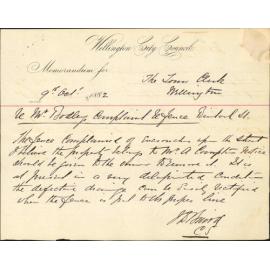 Wellington City Council
Memorandum for
The Town Clerk
9th Oct 1882
Wellington
Re Mr Bodley Complaint re Fence
The fence complained of encroaches upon the Street
the property belongs to Mr A Compton Notice
should be given to the owner to remove it. It is
at present in a very delapidated Condition
the defective drainage can be easily rectified
when the fence is put to its proper line